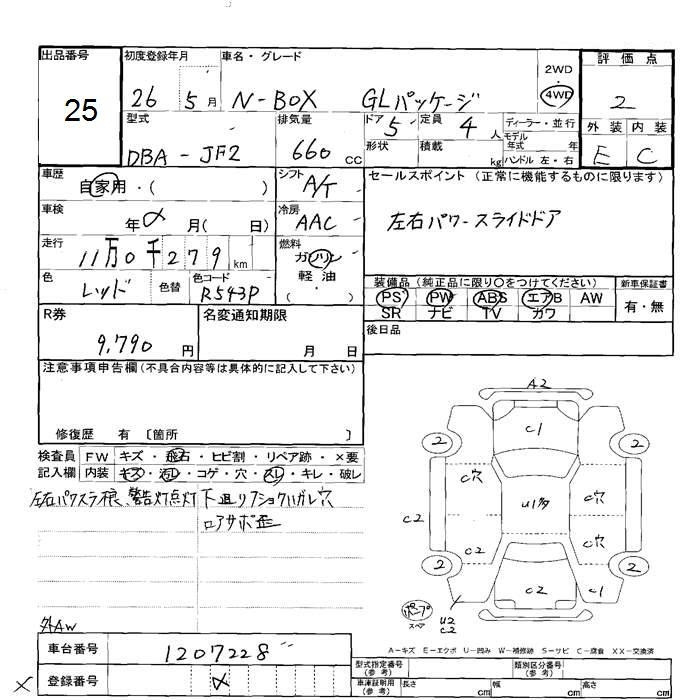 出品番号
25
初度登録年月
26 5月
車名・グレード
N-BOX GLパッケージ
2WD
4WD
評価点
2
型式
DBA-JF2
排気量
660 CC
ドア 5
形状
定員 4 人
積載 kg
ディーラー・並行
モデル年式 年
ハンドル 左・右
外装 内装
E C
車歴
自家用・( )
シフト
A/T
セールスポイント (正常に機能するものに限ります)
左右パワースライドドア
車検
年 月( 日)
冷房
AAC
走行
11万0千279km
燃料
ガソリン
軽・油
( )
色
レッド
色替
色コード
R543P
装備品 (純正品に限り〇をつけてください)
PS PW ABS エアB AW
SR ナビ TV カワ
新車保証書
有・無
R券
9,790 円
名変通知期限
月 日
後日品
注意事項申告欄(不具合内容等は具体的に記入して下さい)
修復歴 有 〔箇所 〕
検査員
記入欄
FW キズ・飛石・ヒビ割・リペア跡・×要
内装 キズ・汚レ・コゲ・穴・スレ・キレ・破レ
警告灯点灯
A2
C1
2 2
C穴 C穴
C2
U1多
C穴
C2
2 2
C2 C1
スペア
U2
C2
外AW
A-キズ E-エクボ U-凹み W-補修跡 S-サビ C-腐食 XX-交換済
車台番号
1207228
登録番号
型式指定番号
(参考)
類別区分番号
(参考)
車庫証明用
(参考)
長さ cm 幅 cm 高さ cm